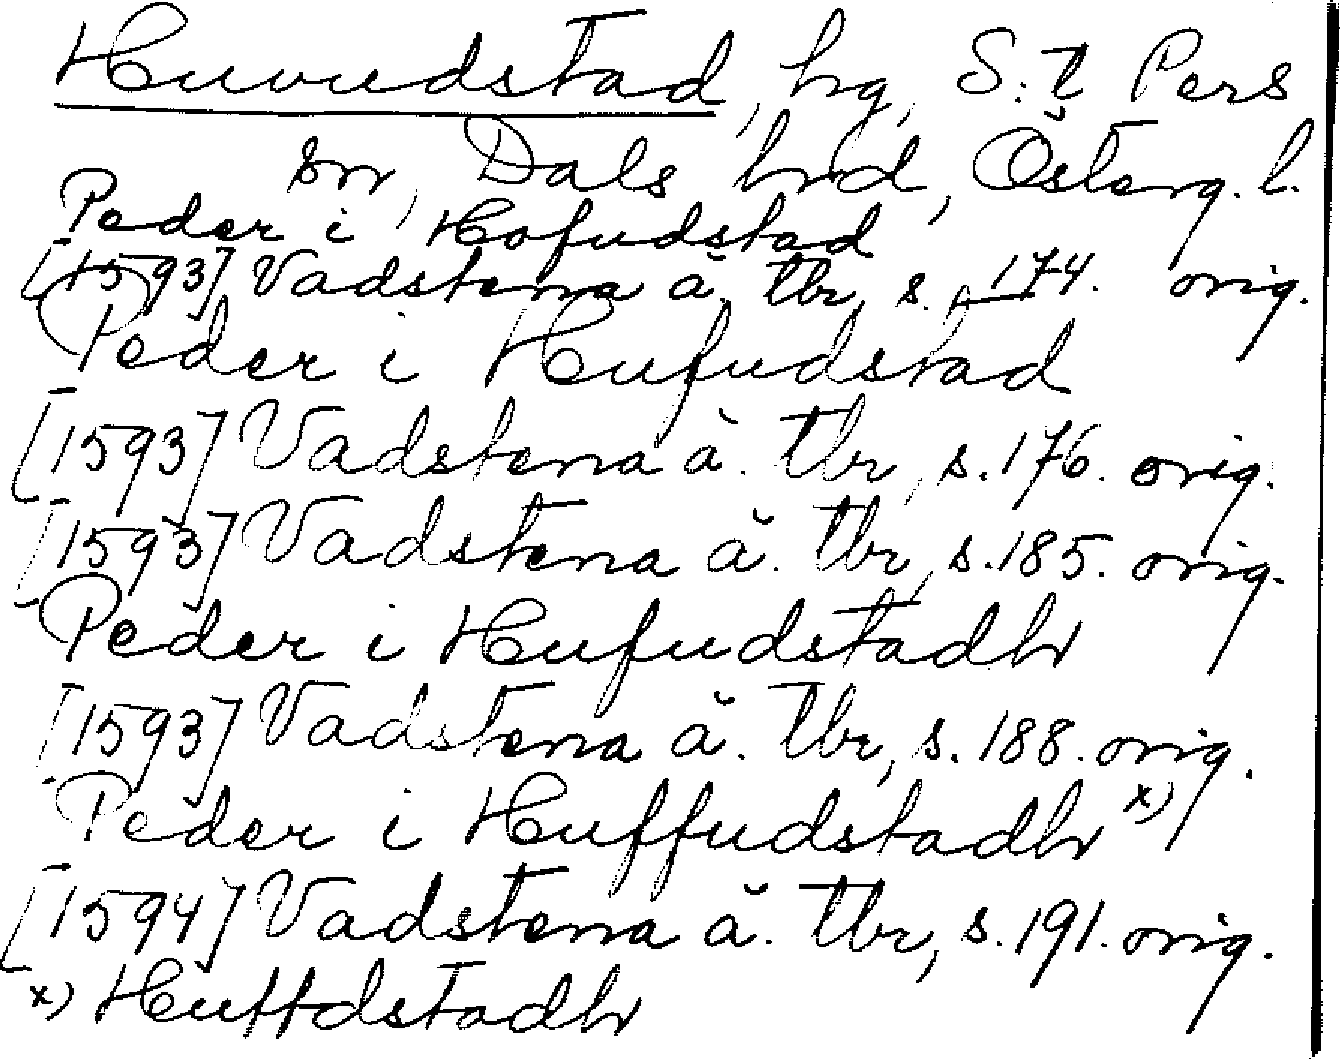 Huvudstad, hg, S:t Pers
sn, Dals hrd, Österg. l.
Peder i Hofudstad
[1593] Vadstena ä. tbr, s. 174. orig.
Peder i Hufudstad
[1593] Vadstena ä. tbr, s. 176. orig.
[1593] Vadstena ä. tbr, s. 185. orig.
Peder i Hufudstadh
[1593] Vadstena ä. tbr, s. 188. orig.
Peder i Huffudstadh x)
[1594] Vadstena ä. tbr, s. 191. orig.
x) Huffdstadh